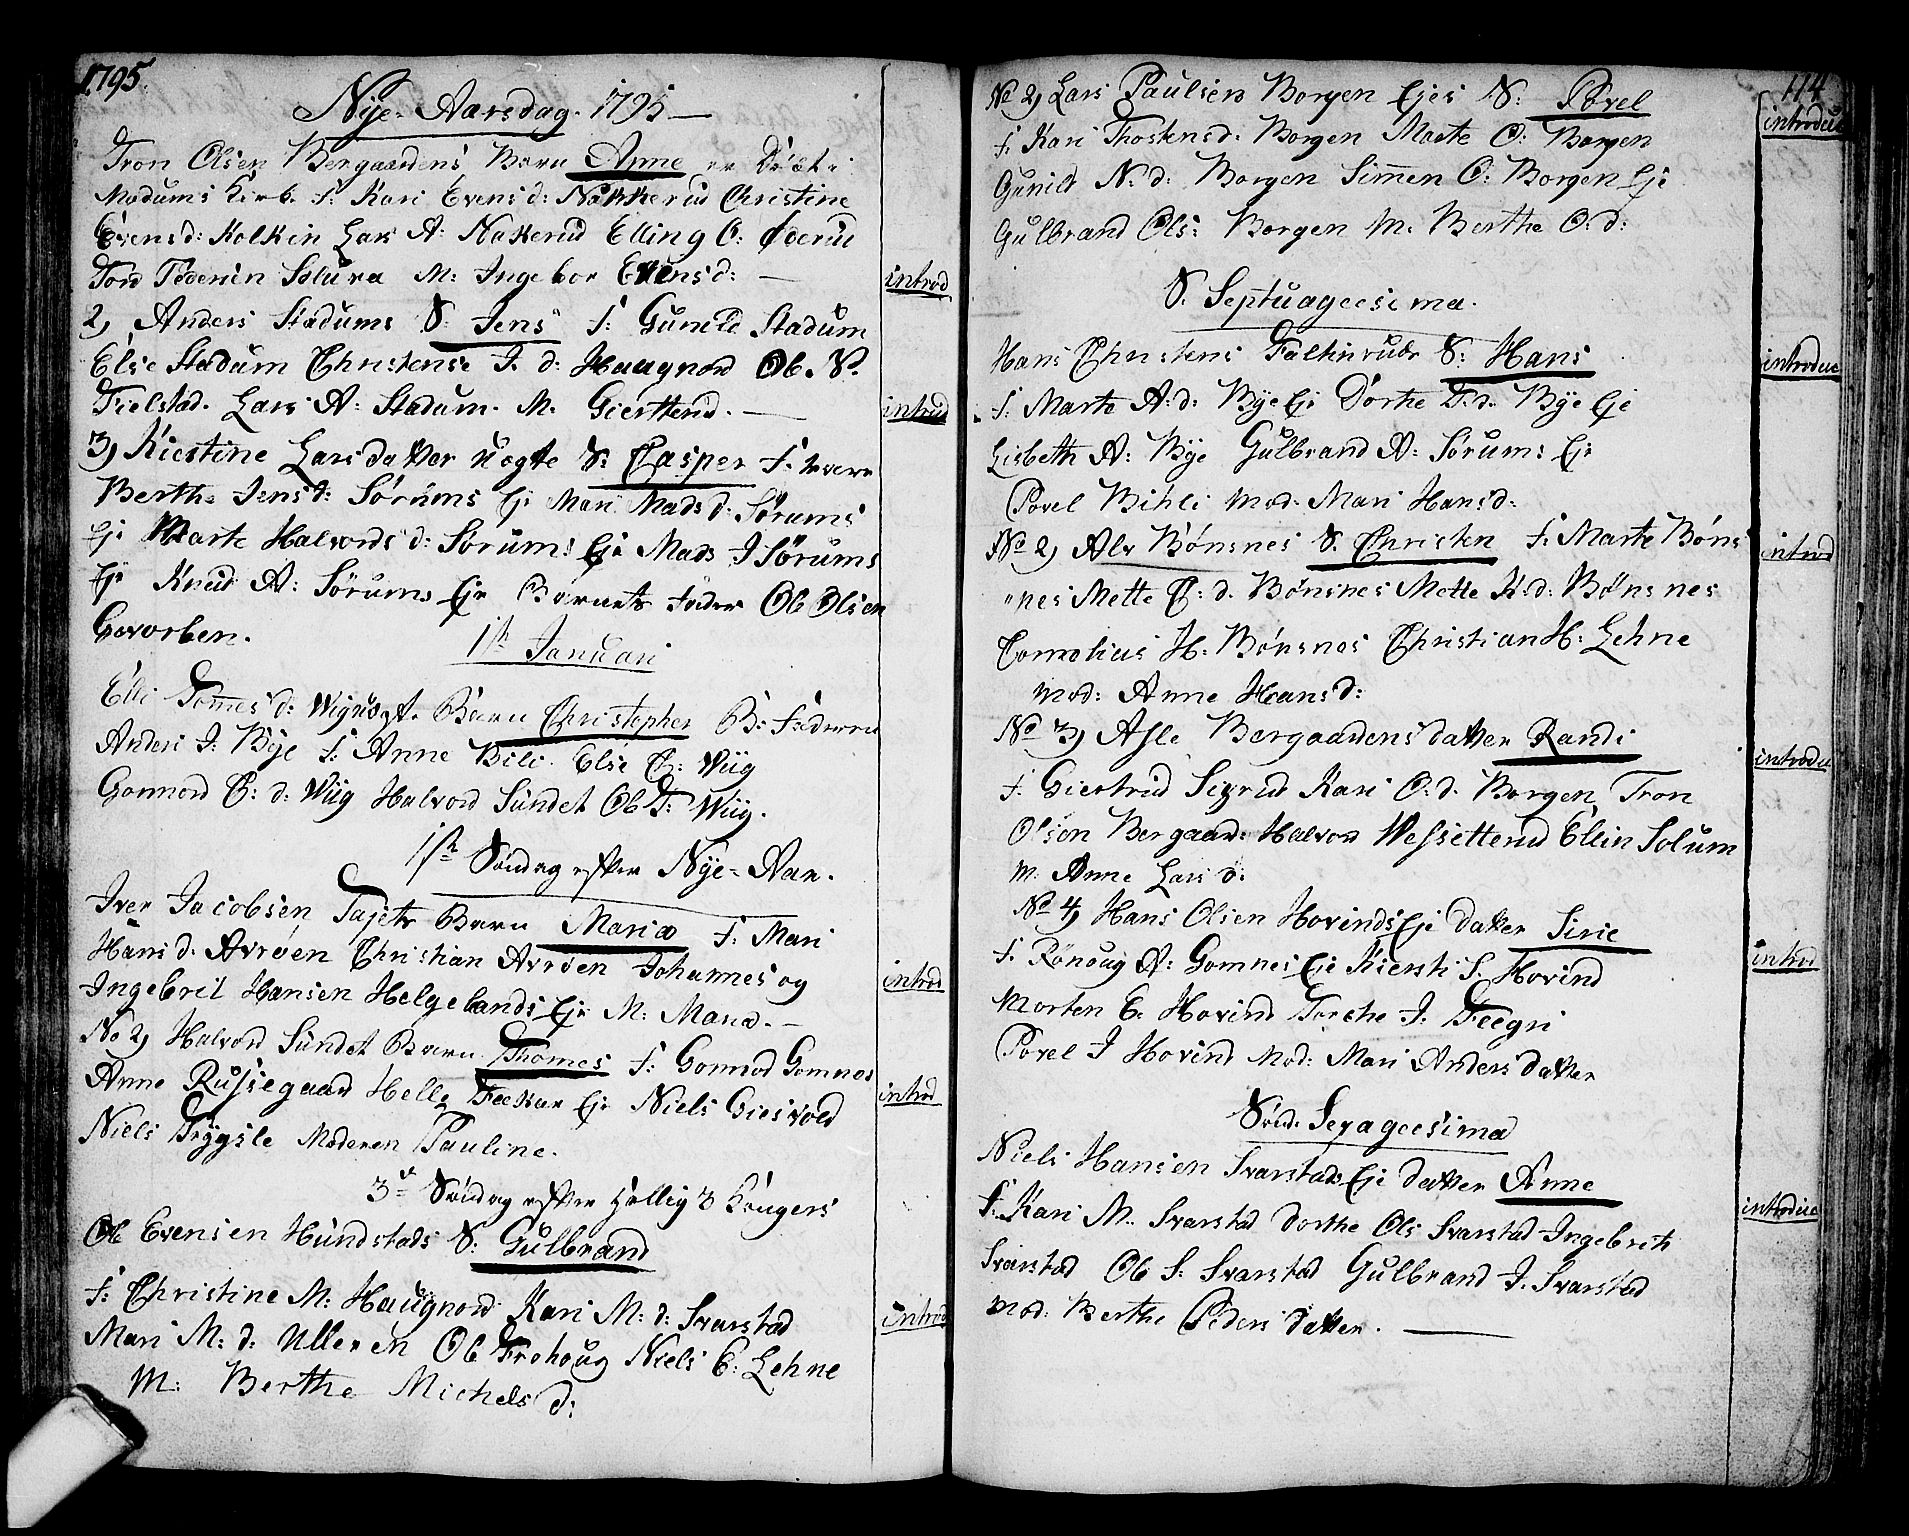 1795.
Nye-Aarsdag. 1795 —
Tron Olsen Bergaardens Barn Anne er Döbt i
Modums Kirk. F: Kari Evensd: Nakkerud Christine
Evensd: Kolkin Lars A: Nakerud Elling O: Øderud
Tord Pedersen Solura M: Ingebor Evensd: —
introd
2, Anders Stadums S: Jens F: Gunild Stadum
Else Stadum Christense J. d: Haugnord Ole N.
Fielstad. Lars A: Stadum. M. Gierttrud. —
introd
3, Kiestine Larsdatter uægte S: Casper F: 
Berthe Jensd: Sörums Eje Mari Madsd: Sörums
Eje Marte Halvordsd: Sörums Eje Mads J Sörums
Eje Knud A: Sörums Eje Barnets Fader Ole Olsen
Gevorben.
1ste Januari
Elli Tommesd: Wig uægte Barn Christopher B: Faderen
Anders J: Bye F: Anne Bili. Else C: Wiig
Gonnord C: d: Wiig Halvord Sundet Ole T: Wiig.
1ste Söndag efter Nye-Aar.
Iver Jacobsen Tajets Barn Maria F: Mari
Hansd. Avröen Christian Avröen Johannes og
Ingebril Hansen Helgelands Eje M: Maria. —
introd
No 2, Halvord Sundet Barn Thomes F: Gonnod Gomnes
Anne Russegaard Helle Feekar Eje Niels Giesvold
introd
Niels Trÿgsle Moderen Pauline.
3de Söndag efter Hellig 3 Kongers
Ole Evensen Hundstads S: Gulbrand
F: Christine M: Haugnord Kari M: d: Svarstad
introd
Mari M: d: Ulleren Ole Frohoug Niels E: Lehne
M: Berthe Michelsd:
114
No 2, Lars Paulsens Borgen Ejes S: Povel
introduc
F: Kari Thostensd: Borgen Marte O: Borgen
Gunild N: d: Borgen Simen O: Borgen Eje
Gulbrand Ols: Borgen M. Berthe O. d:
S. Septuageesima.
Hans Christens Falkinrude S: Hans
introduc
F: Marte A: d: Bye Eje Dorthe T. d. Bye Eje
Lisbeth A: Bye Gulbrand A: Sörums Eje
Povel Bihli mod. Mari Hansd:
No 2, Alv Bönsnes S: Christen F: Marte Böns
introd
"nes Mette C: d: Bönsnes Mette K: d: Bönsnes
Cornelius H: Bönsnes Christian H: Lehne
Mod: Anne Hansd:
No 3, Asle Bergaardens datter Randi
introdu
F: Giertrud Sigrud Kari O. d. Borgen Tron
Olsen Bergaard: Halvord Vessetterud Ellin Solum
M: Anne Larsd:
No 4, Hans Olsen Hovinds Eje Datter Sirie
F: Rönoug A: Gomnes Eje Kiersti S. Hovind
introd
Morten E. Hovind Torche J: Feegri
Povel J Hovind Mod: Mari Andersdatter
Sönd: Sexageesima
Niels Hansen Svarstads Eje Datter Anne
F: Kari M. Svarstad Dorthe Ols Svarstad Ingebreth
introduc
Svarstad Ole S: Svarstad Gulbrand J. Svarstad
Mod: Berthe Pedersdatter. —